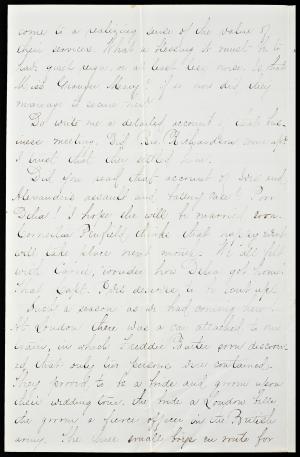 come to a realizing sense of the value of
their services. What a blessing it must be to
have quiet reign, or at least less noise. Is that
Miss Granger Mercy? if so how did they
manage to secure her?
Do write me a detailed account of that bus-
iness meeting. Did Bro. Richardson come up?
I trust that they settled him.
Did you read that account of Ives and
Alexanders assault and battery case? Poor
Delia! I hope she will be married soon.
Cornelius Penfield thinks that no event
will take place next month. We all felt
with Carrie, wonder how Delia got home.
That Capt. Ives deserves to be shut up.
Such a season as we had coming new
At Loudon there was a car attached to our
train, in which Freddie Porter soon discover-
ed that only two persons were contained.
They proved to be a bride and groom upon
their wedding tour. the bride a Loudon belle
the groom, a fierce officer in the British
army. The three small boys en route for